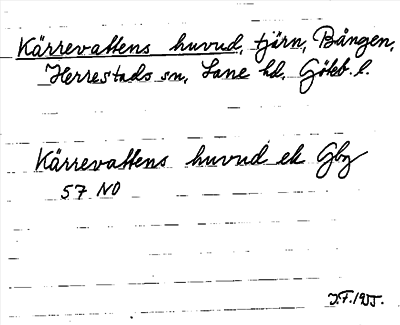 Kärrevattens huvud, tjärn, Bången,
Herrestads sn, Lane hd, Göteb. l.
Kärrevattens huvud ek Gbg
57 NO
J.F. 1955.